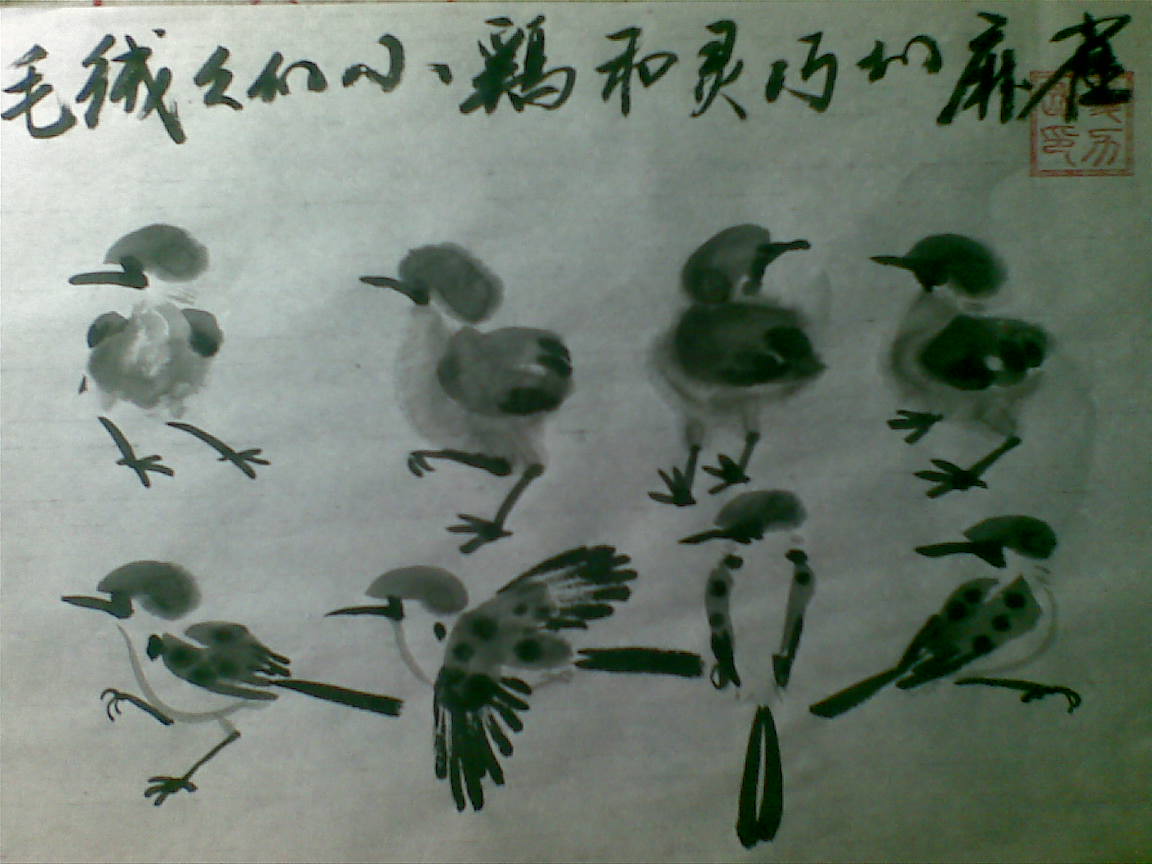 毛绒々的小鷄和灵巧的麻雀